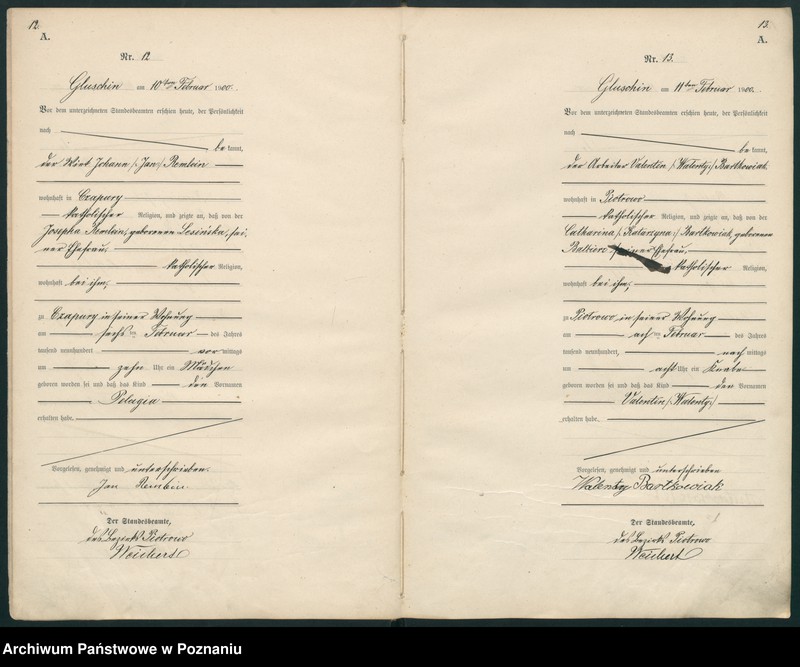 12.
A.
Nr. 12
Gluschin am 10ten Februar 1900.
Vor dem unterzeichneten Standesbeamten erschien heute, der Persönlichkeit
nach
be kannt,
der Wirt Johann /:Jan:/ Remlein
wohnhaft in Czapury
katholischer Religion, und zeigte an, daß von der
Josepha Remlein, geborenen Lesinska, sei-
ner Ehefrau,
katholischer Religion,
wohnhaft bei ihm,
zu Czapury in seiner Wohnung
am sechsten Februar des Jahres
tausend neunhundert vor mittags
um zehn Uhr ein Mädchen
geboren worden sei und daß das Kind den Vornamen
Pelagia
erhalten habe.
Vorgelesen, genehmigt und unterschrieben.
Jan Remlein
Der Standesbeamte,
des Bezirks Piotrowo
Weichert
13.
A.
Nr. 13.
Gluschin am 11ten Februar 1900.
Vor dem unterzeichneten Standesbeamten erschien heute, der Persönlichkeit
nach
be kannt,
der Arbeiter Valentin /:Walenty:/ Bartkowiak
wohnhaft in Piotrowo
katholischer Religion, und zeigte an, daß von der
Catharina /:Katarzyna:/ Bartkowiak, geborenen
seiner Ehefrau.
katholischer Religion,
wohnhaft bei ihm,
zu Piotrowo in seiner Wohnung
am Februar des Jahres
tausend neunhundert, nach mittags
um acht Uhr ein Knabe
geboren worden sei und daß das Kind den Vornamen
Valentin /:Walenty:/
erhalten habe.
Vorgelesen, genehmigt und unterschrieben
Walenty Bartkowiak
Der Standesbeamte,
des Bezirks Piotrowo
Weichert
Archiwum Państwowe w Poznaniu